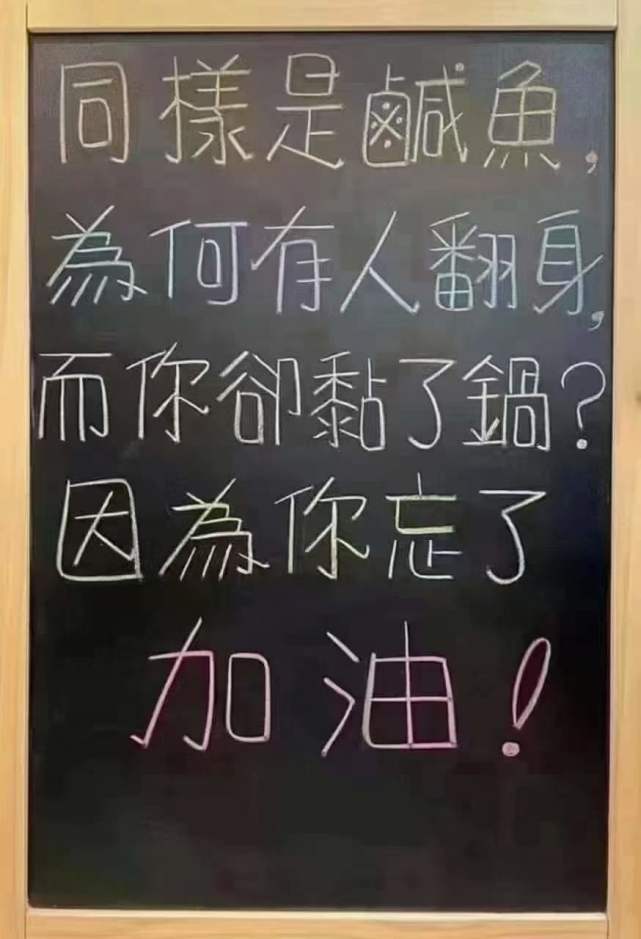 同樣是鹹魚，
為何有人翻身，
而你卻黏了鍋？
因為你忘了
加油！